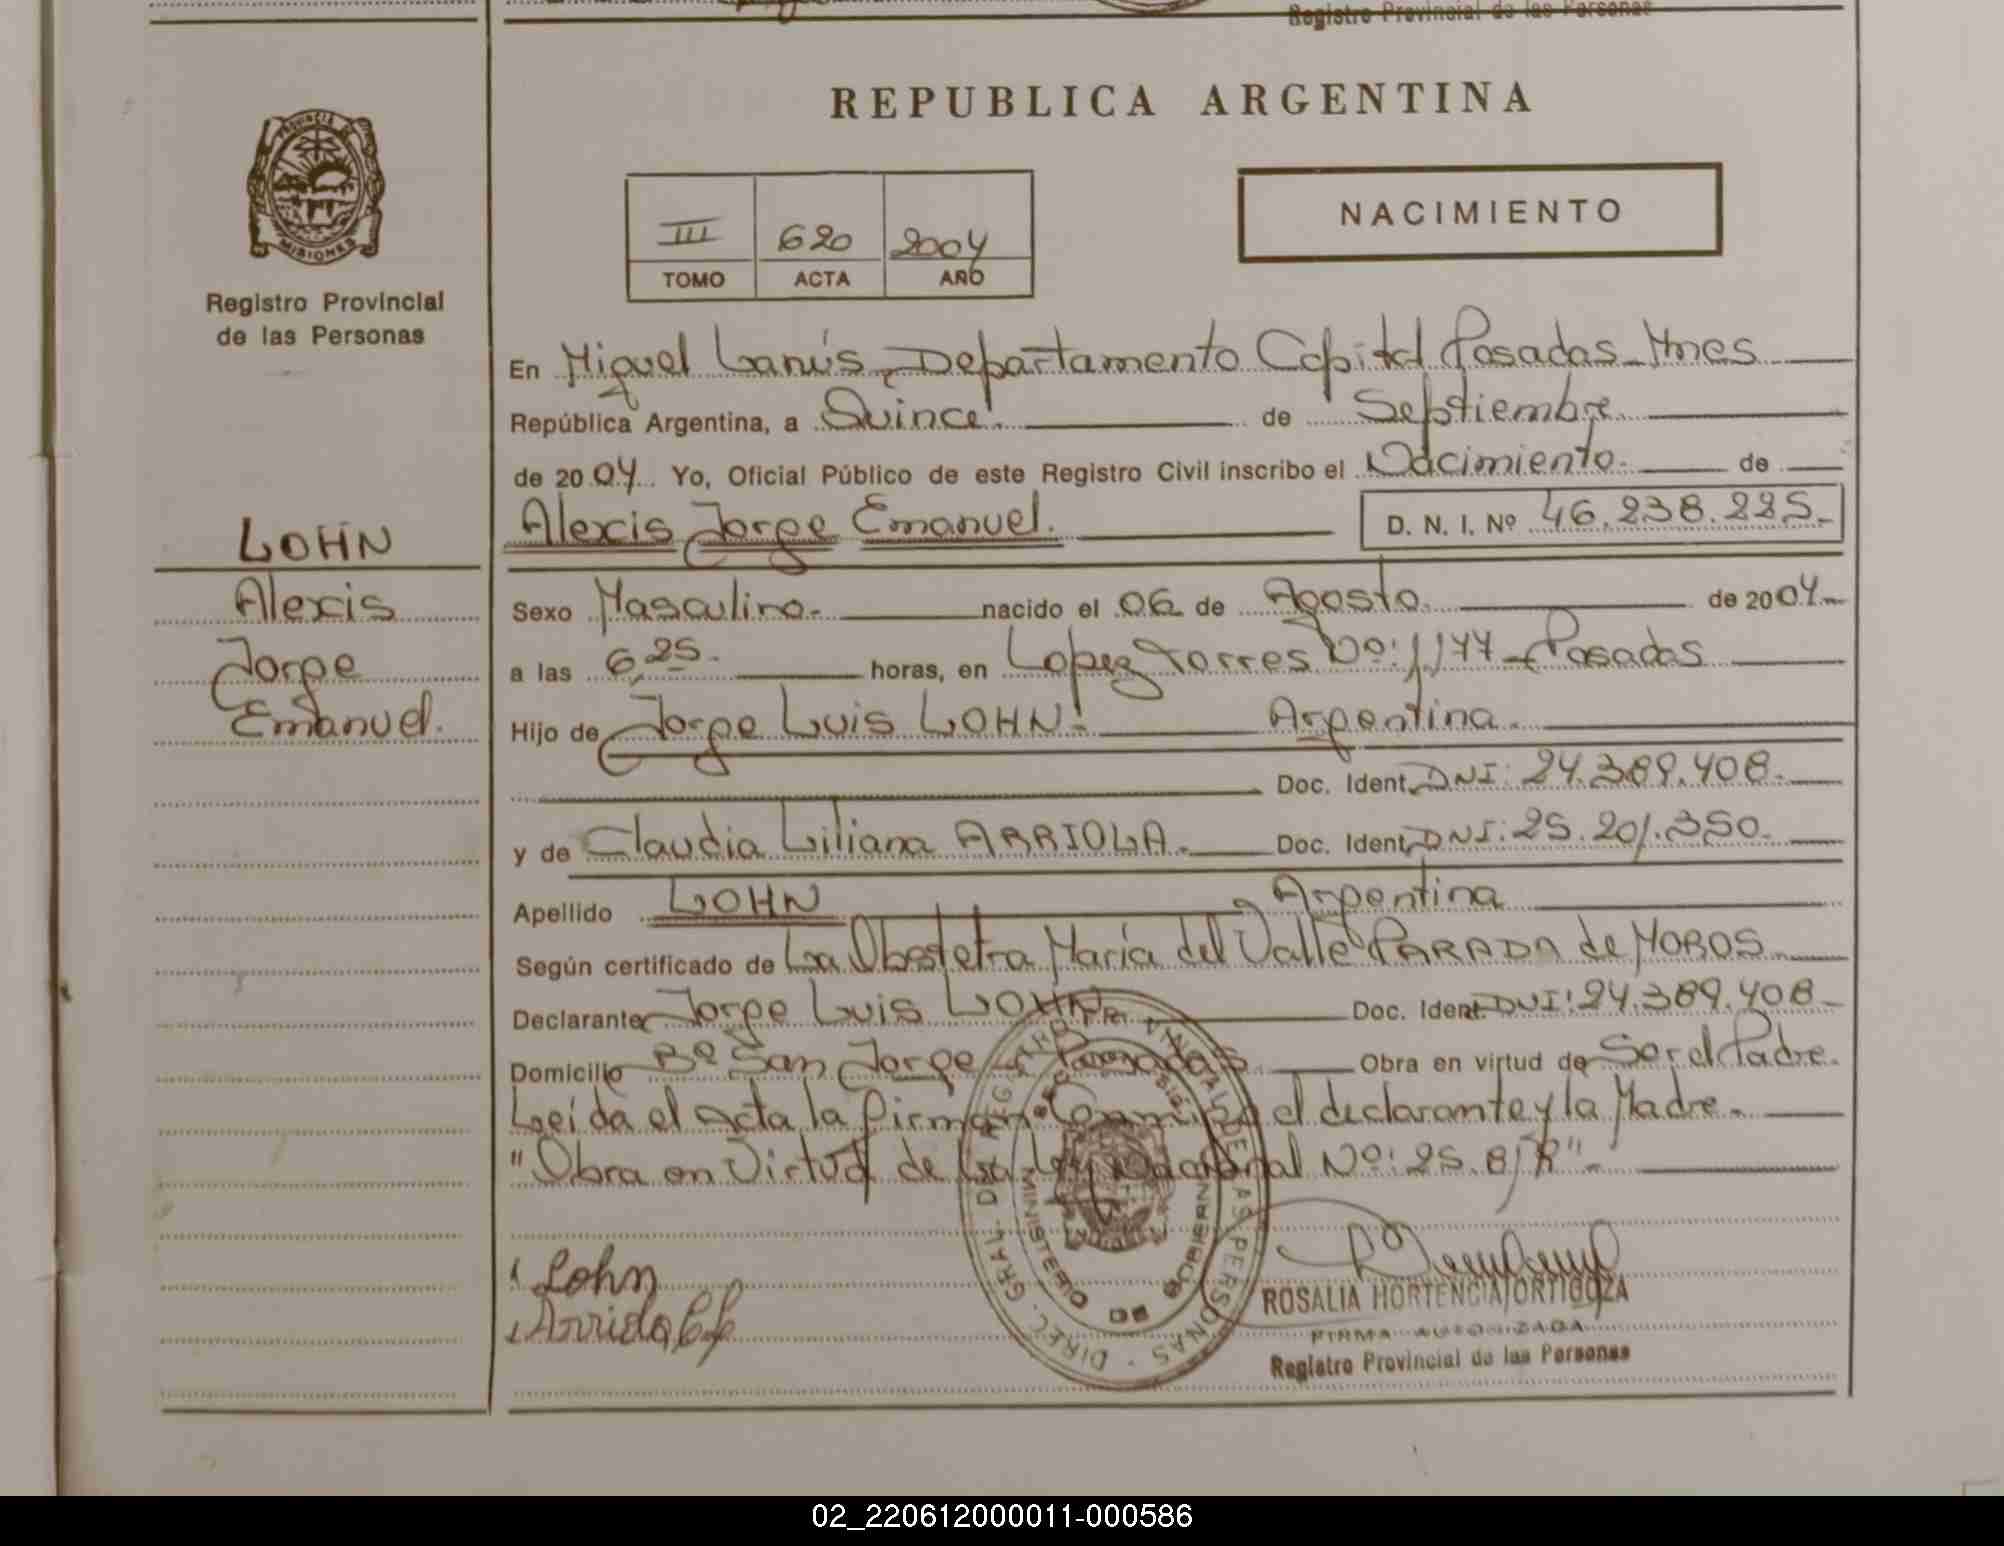 Registro Provincial de las Personas
REPUBLICA ARGENTINA
PROVINCIA DE
MISIONES
Registro Provincial
de las Personas
III 620 2004
TOMO ACTA AÑO
NACIMIENTO
En Miguel Lanús, Departamento Capital Posadas-Mnes
República Argentina, a Quince. de Septiembre
de 2004 Yo, Oficial Público de este Registro Civil inscribo el Nacimiento. de
Alexis Jorge Emanuel. D. N. I. Nº 46.238.225.-
LOHN
Alexis
Jorge
Emanuel.
Sexo Masculino.- nacido el 06 de Agosto. de 2004.-
a las 6,25.- horas, en Lopez Torres Nº: 1177 - Posadas
Hijo de Jorge Luis LOHN.- Argentina.
Doc. Ident. DNI: 24.389.408.-
y de Claudia Liliana ARRIOLA.- Doc. Ident. DNI: 25.201.350.-
Apellido LOHN Argentina
Según certificado de La Obstetra María del Valle PARADA de MOROS
Declarante Jorge Luis LOHN Doc. Ident. DNI: 24.389.408-
Domicilio Bº San Jorge - Posadas Obra en virtud de Ser el Padre.
Leída el acta la firman Conmigo el declarante y la Madre.-
"Obra en Virtud de La Ley Nacional Nº: 25.
DIREC. GRAL. DE REGISTRO PROVINCIAL DE LAS PERSONAS
MINISTERIO DE GOBIERNO
Lohn
Arriola
ROSALIA HORTENCIA ORTIGOZA
FIRMA AUTORIZADA
Registro Provincial de las Personas
02_220612000011-000586